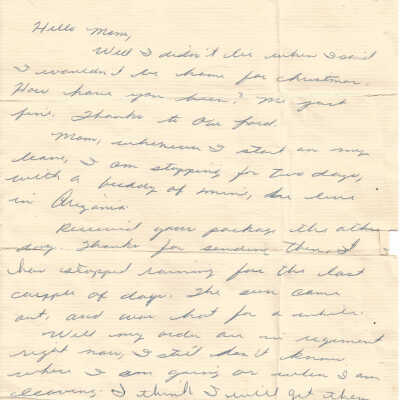 Hello Mom,
Well I didn't lie when I said
I wouldn't be home for christmas.
How have you been? Me just
fine. Thanks to Our Lord.
Mom, whenever I start on my
leave, I am stopping for two days,
with a buddy of mine, he live
in Arizonia.
Received your package the other
day. Thanks for sending them. It
has stopped raining for the last
coupple of days. The sun came
out, and was hot for a while.
Well my order are in regiment
right now, I still don't know
where I am going or when I am
leaving. I think I will get them